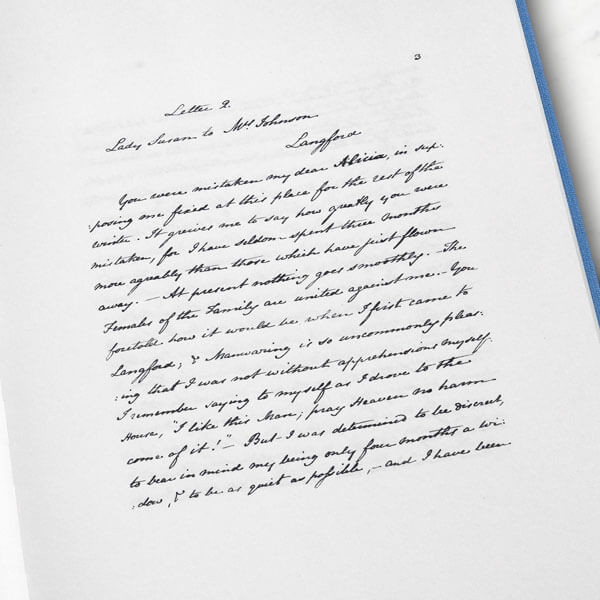 3
Letter 2.
Lady Susan to Mrs Johnson
Langford
You were mistaken my dear Alicia, in sup:
:posing me fixed at this place for the rest of the
winter. It greives me to say how greatly you were
mistaken, for I have seldom spent three months
more agreably than those which have just flown
away. — At present nothing goes smoothly. — The
Females of the Family are united against me. — You
foretold how it would be when I first came to
Langford; & Manwaring is so uncommonly pleas:
:ing that I was not without apprehensions myself.
I remember saying to myself as I drove to the
House, "I like this Man; pray Heaven no harm
come of it!" — But I was determined to be discreet,
to bear in mind my being only four months a wi:
:dow, & to be as quiet as possible, — and I have been